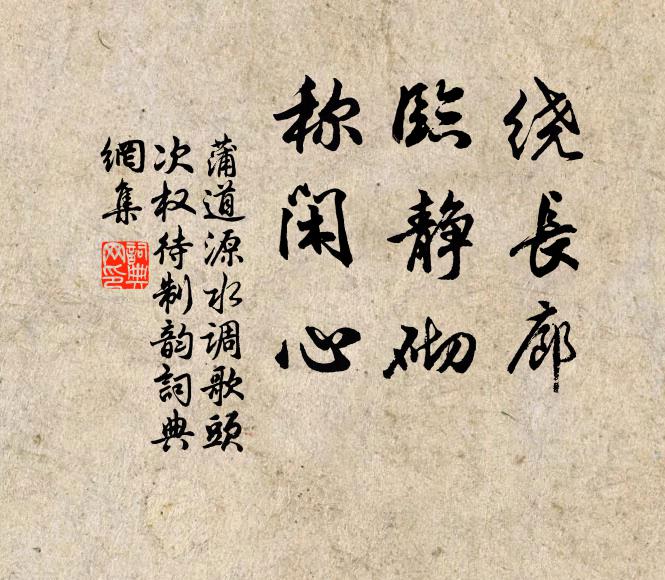 绕长廊
临静砌
称闲心
蒲道源水调歌头
次权待制韵詞典
網集
詞典
网印